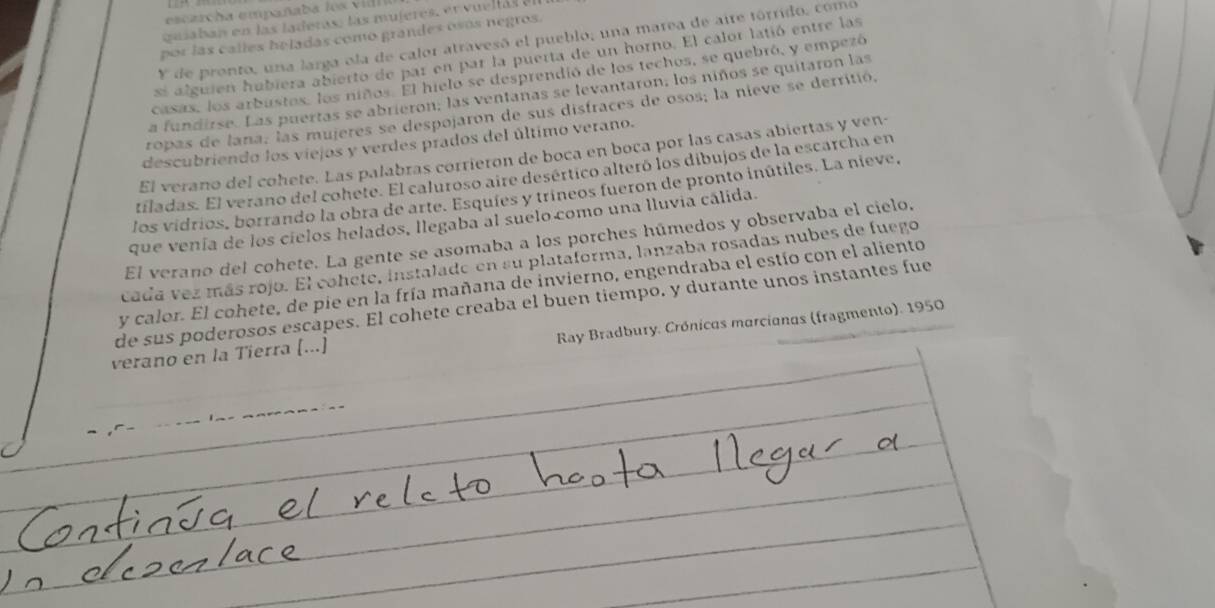 escarcha empañaba los
quiaban en las laderas; las mujeres, envueltas
por las calles heladas como grandes osos negros.
Y de pronto, una larga ola de calor atravesó el pueblo; una marea de aire tórrido, como
si alguien hubiera abierto de par en par la puerta de un horno. El calor latió entre las
casas, los arbustos, los niños. El hielo se desprendió de los techos, se quebró, y empezó
a fundirse. Las puertas se abrieron; las ventanas se levantaron; los niños se quitaron las
ropas de lana; las mujeres se despojaron de sus disfraces de osos; la nieve se derritió,
descubriendo los viejos y verdes prados del último verano.
El verano del cohete. Las palabras corrieron de boca en boca por las casas abiertas y ven-
tiladas. El verano del cohete. El caluroso aire desértico alteró los dibujos de la escarcha en
los vidrios, borrando la obra de arte. Esquíes y trineos fueron de pronto inútiles. La nieve,
que venía de los cielos helados, llegaba al suelo como una lluvia cálida.
El verano del cohete. La gente se asomaba a los porches húmedos y observaba el cielo,
cada vez más rojo. El cohete, instalado en su plataforma, lanzaba rosadas nubes de fuego
y calor. El cohete, de pie en la fría mañana de invierno, engendraba el estío con el aliento
de sus poderosos escapes. El cohete creaba el buen tiempo, y durante unos instantes fue
verano en la Tierra [...]
Ray Bradbury. Crónicas marcianas (fragmento). 1950
Continúa el relato hasta llegar a
un desenlace